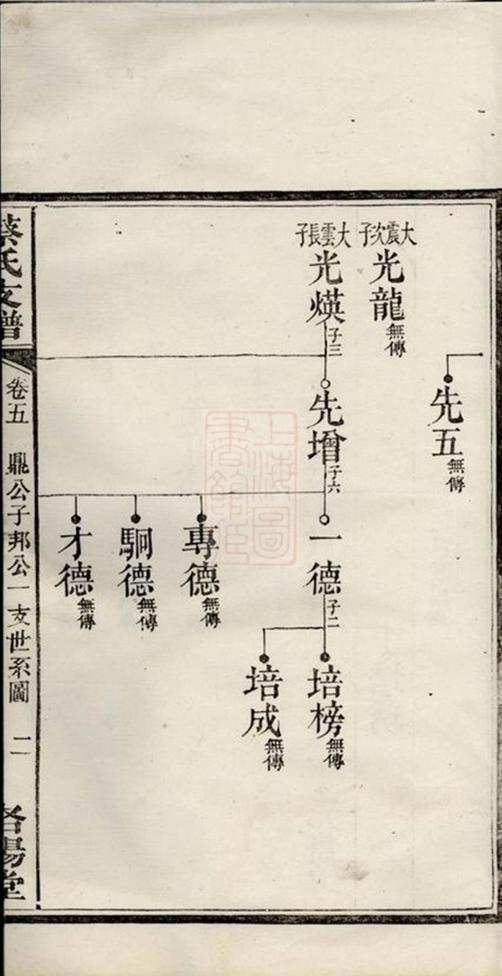 先五 無傳
大震次子
光龍 無傳
大雲長子
光煐 子三
先增 子六
一德 子二
培榜 無傳
培成 無傳
專德 無傳
駉德 無傳
才德 無傳
蔡氏支譜
卷五 鼎公子邦公一支世系圖 二
洛陽堂
上海圖書館藏